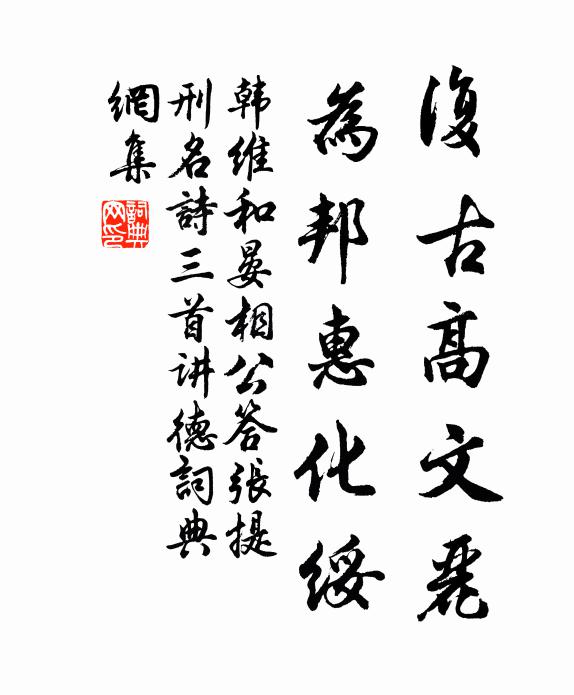 復古高文麗
為邦惠化綏
韩維和晏相公答張提
刑名詩三首讲德詞典
網集
詞典网印